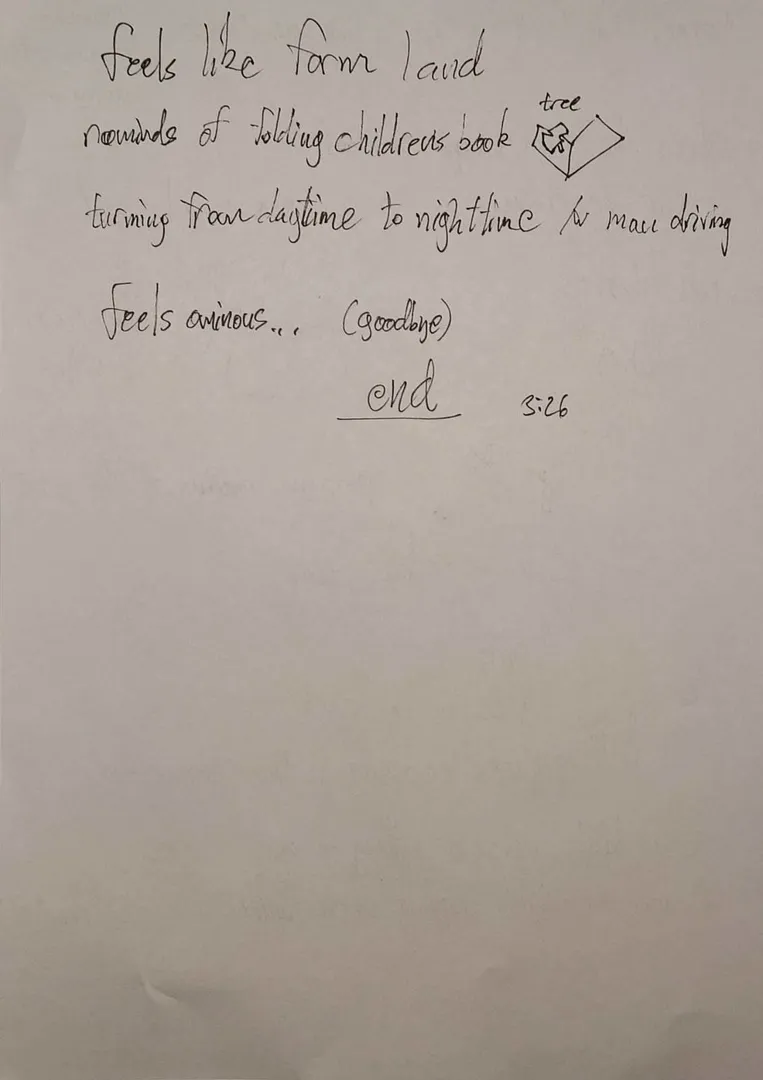 feels like farm land
tree
reminds of folding childrens book
turning from daytime to nighttime for man driving
feels ominous... (goodbye)
end 3:26